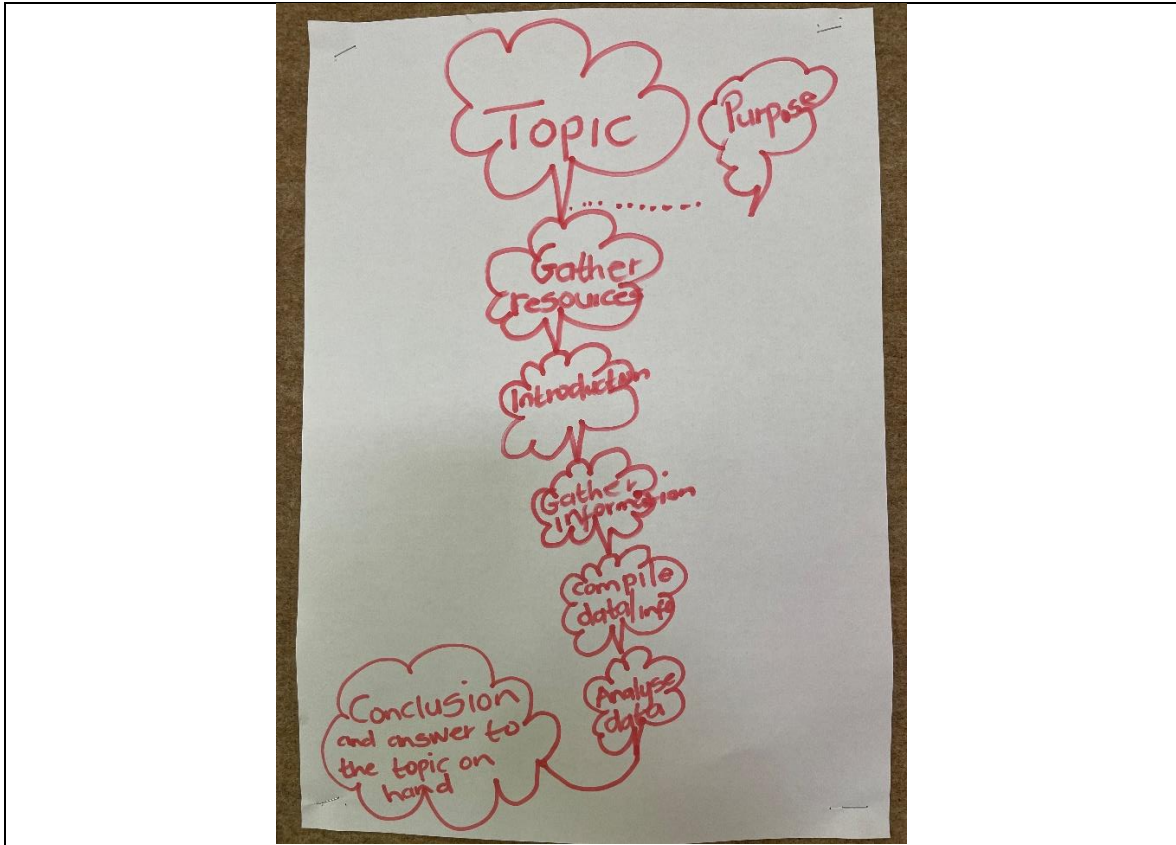 Topic
Purpose
Gather
resources
Introduction
Gather
information
compile
data/info
Analyse
data
Conclusion
and answer to
the topic on
hand